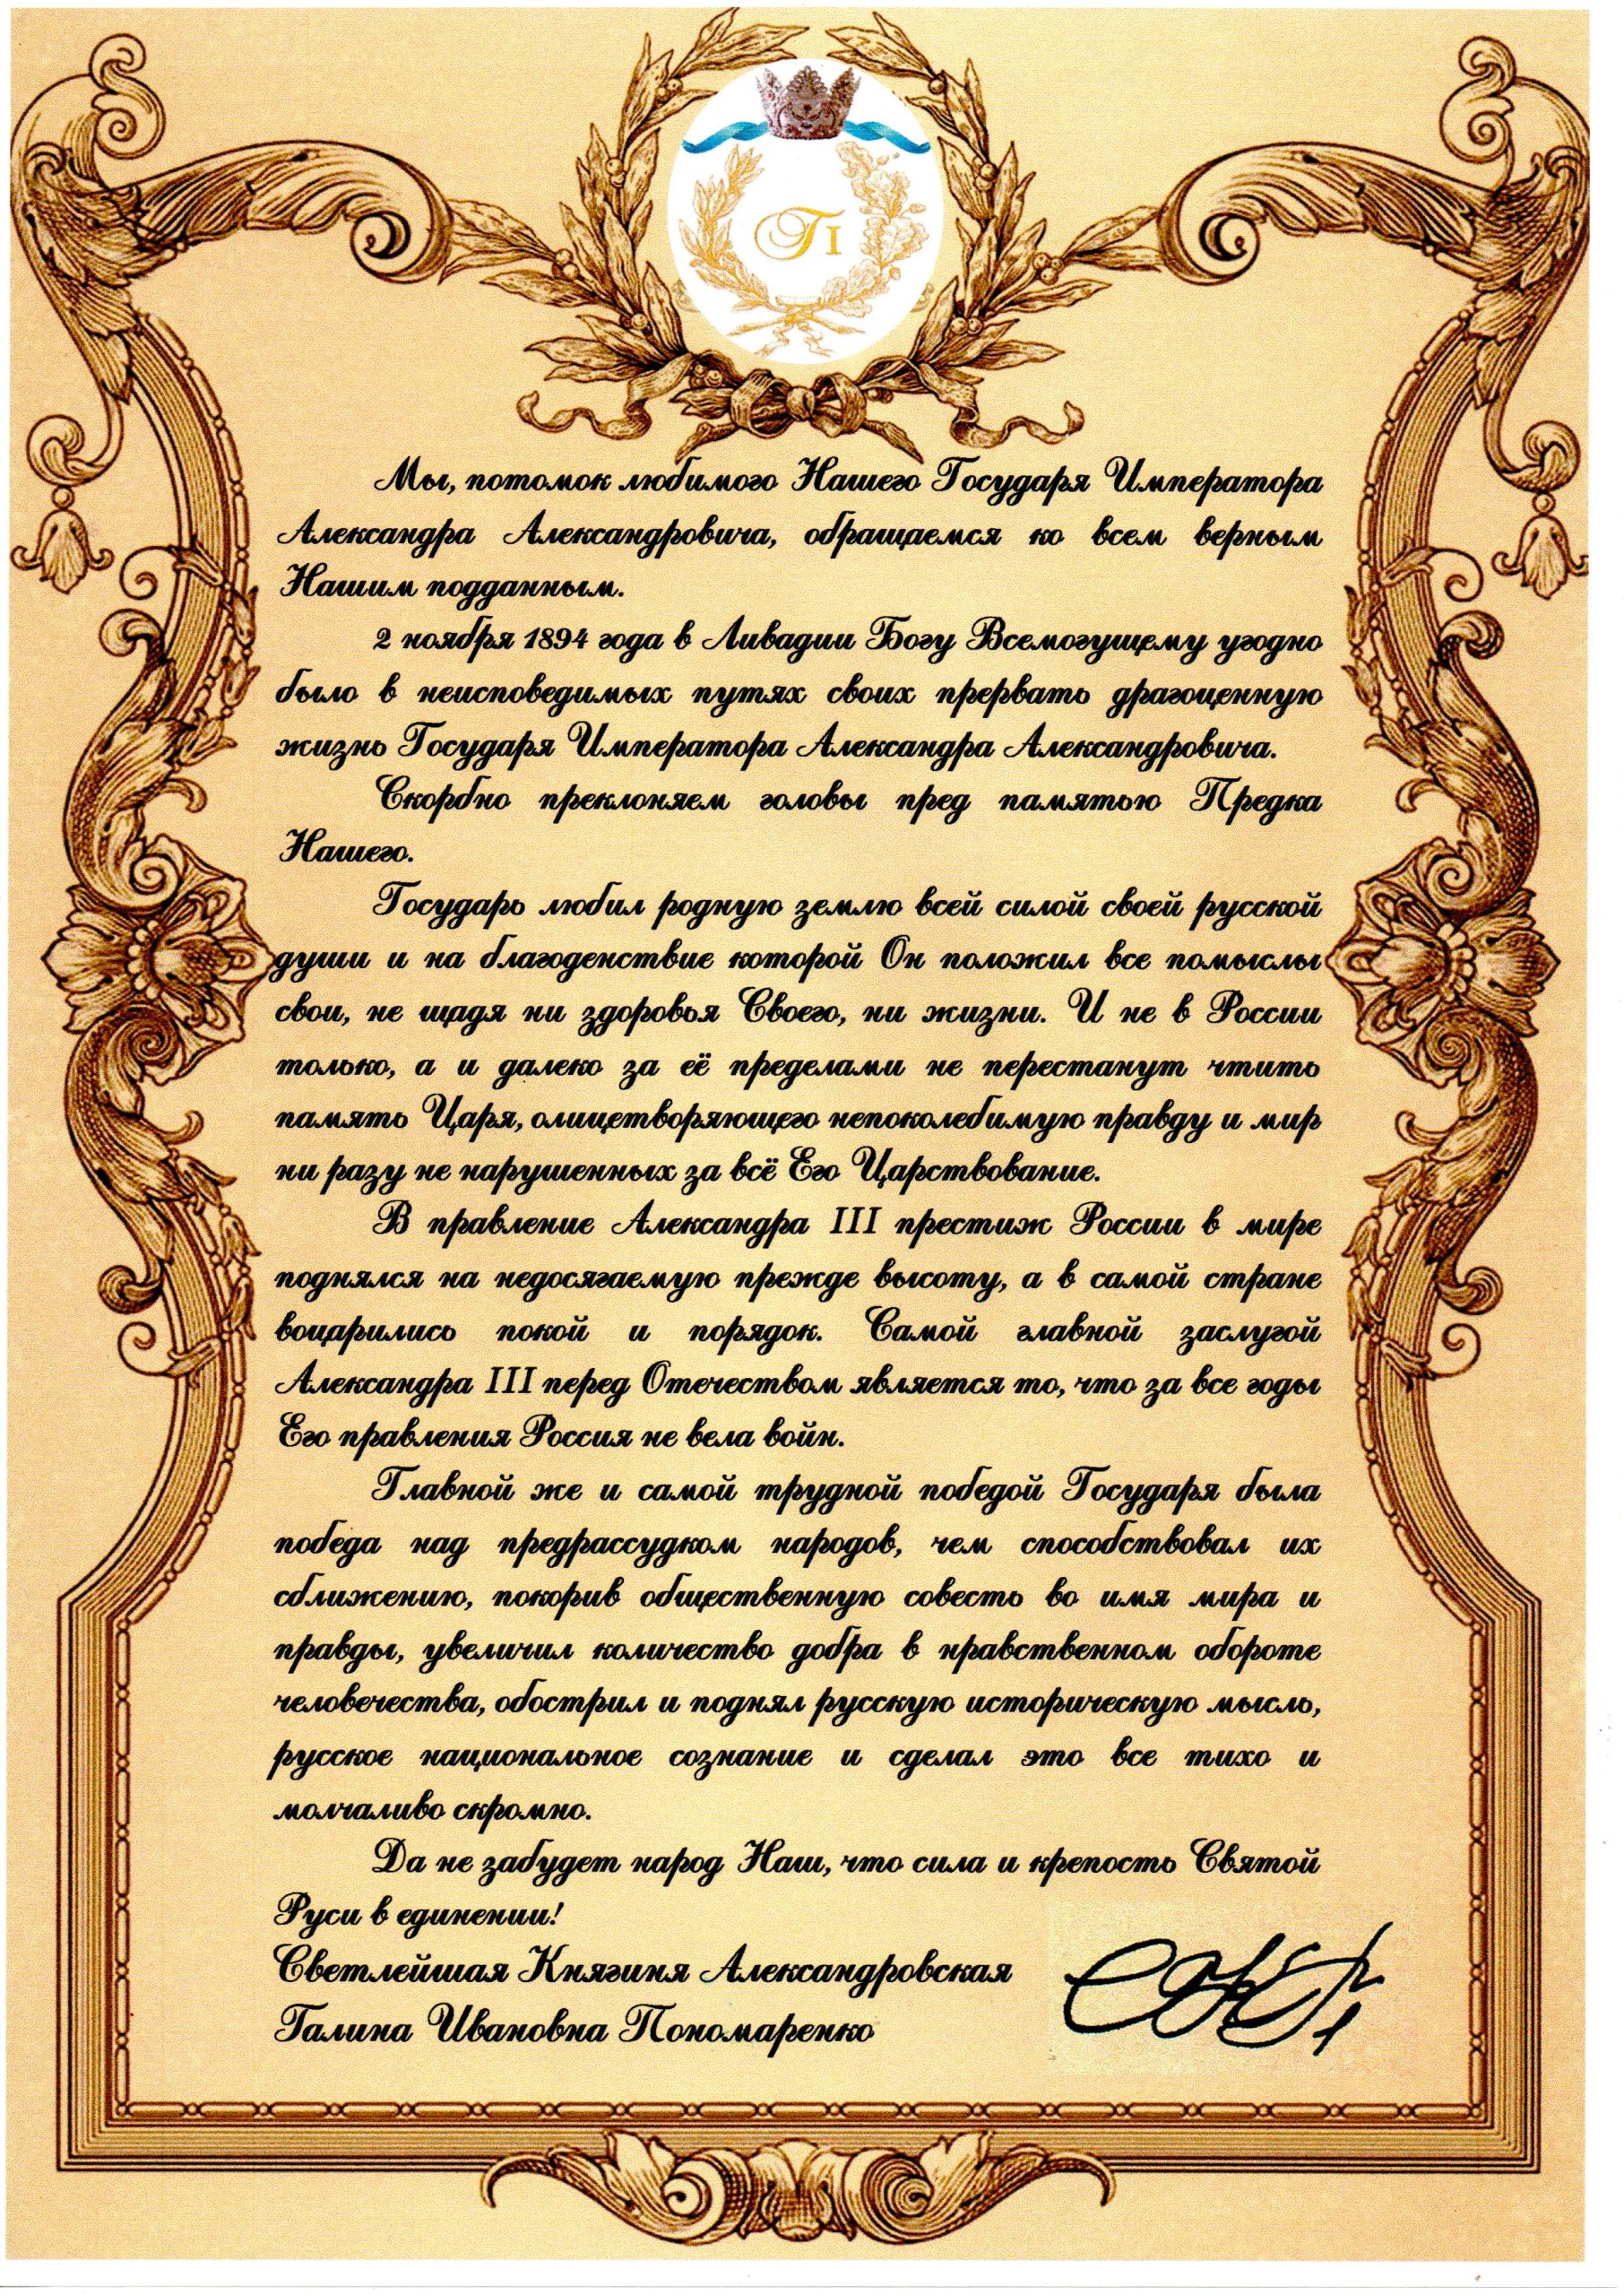 Г I
Мы, потомок любимого Нашего Государя Императора
Александра Александровича, обращаемся ко всем верным
Нашим подданным.
2 ноября 1894 года в Ливадии Богу Всемогущему угодно
было в неисповедимых путях своих прервать драгоценную
жизнь Государя Императора Александра Александровича.
Скорбно преклоняем головы пред памятью Предка
Нашего.
Государь любил родную землю всей силой своей русской
души и на благоденствие которой Он положил все помыслы
свои, не щадя ни здоровья Своего, ни жизни. И не в России
только, а и далеко за её пределами не перестанут чтить
память Царя, олицетворяющего непоколебимую правду и мир
ни разу не нарушенных за всё Его Царствование.
В правление Александра III престиж России в мире
поднялся на недосягаемую прежде высоту, а в самой стране
воцарились покой и порядок. Самой главной заслугой
Александра III перед Отечеством является то, что за все годы
Его правления Россия не вела войн.
Главной же и самой трудной победой Государя была
победа над предрассудком народов, чем способствовал их
сближению, покорив общественную совесть во имя мира и
правды, увеличил количество добра в нравственном обороте
человечества, обострил и поднял русскую историческую мысль,
русское национальное сознание и сделал это все тихо и
молчаливо скромно.
Да не забудет народ Наш, что сила и крепость Святой
Руси в единении!
Светлейшая Княгиня Александровская
Галина Ивановна Пономаренко